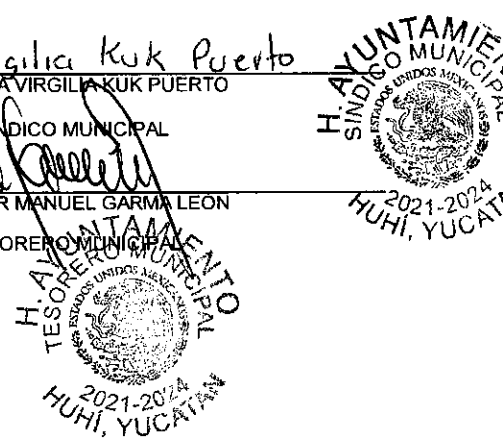 gilia Kuk Puerto
A VIRGILIA KUK PUERTO
NDICO MUNICIPAL
R MANUEL GARMA LEÓN
SORERO MUNICIPAL
H. AYUNTAMIEN
SINDICO MUNICIPAL
ESTADOS UNIDOS MEXICANOS
2021-2024
HUHÍ, YUCATÁN
H. AYUNTAMIENTO
TESORERO MUNICIPAL
ESTADOS UNIDOS MEXICANOS
2021-2024
HUHÍ, YUCATAN